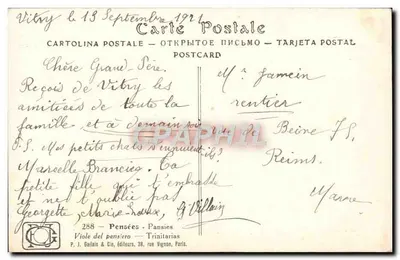 Vitry le 13 Septembre 1921
Carte Postale
CARTOLINA POSTALE — ОТКРЫТОЕ ПИСЬМО — TARJETA POSTAL
POSTCARD
Chère Grand Père.
Reçois de Vitry les
amitiées de toute la
famille et à demain
P.S. Mes petits chats s'ennuient-ils?
Marcelle Brancicq. Ta
petite fille qui t'embrasse
et ne t'oublie pas
Georgette Villain
Mr Jamein
rentier
rue de Beine 75
Reims.
Marne
CARTEAPHIL
288 — Pensées - Pansies
Viole del pensiero — Trinitarias
P. J. Gallais & Cie, éditeurs, 38, rue Vignon, Paris.